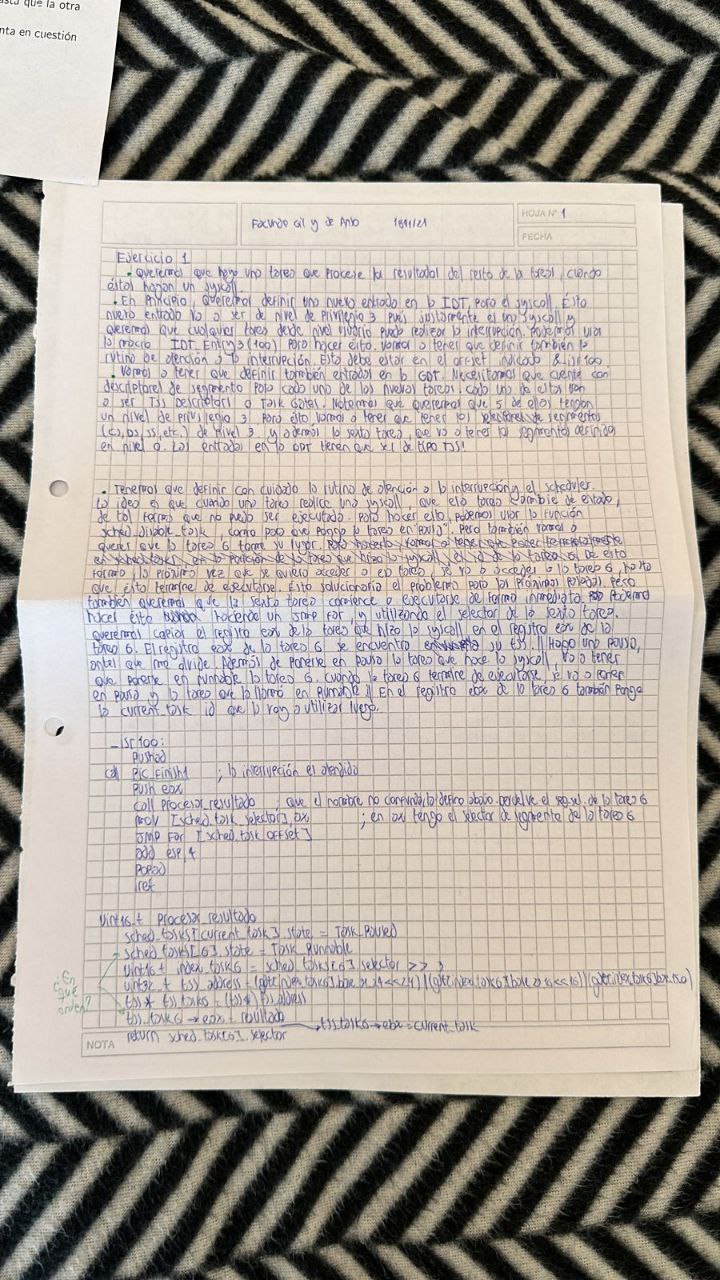 asta que la otra
nta en cuestión
Facundo Gil y de Anso 1891/21
HOJA N° 1
FECHA
Ejercicio 1
• Queremos que haya una tarea que procese los resultados del resto de las tareas, cuando
éstas hagan un syscall.
• En principio, queremos definir una nueva entrada en la IDT, para el syscall. Esta
nueva entrada va a ser de nivel de privilegio 3 pues justamente es un syscall y
queremos que cualquier tarea desde nivel usuario pueda realizar la interrupción. Podemos usar
la macro IDT_Entry3(100) para hacer esto. Vamos a tener que definir también la
rutina de atención a la interrupción. Esta debe estar en el offset indicado &_isr100.
• Vamos a tener que definir también entradas en la GDT. Necesitamos que cuente con
descriptores de segmento para cada una de las nuevas tareas. Cada uno de estos van
a ser TSS Descriptors o Task Gates. Notemos que queremos que 5 de ellas tengan
un nivel de privilegio 3. Para esto, vamos a tener que tener los selectores de segmentos
(cs, ds, ss, etc.) de nivel 3 y además la sexta tarea, que va a tener los segmentos definidos
en nivel 0. Las entradas en la GDT tienen que ser de tipo TSS!
• Tenemos que definir con cuidado la rutina de atención a la interrupción y el scheduler.
La idea es que cuando una tarea realice una syscall, que esta tarea cambie de estado,
de tal forma que no pueda ser ejecutada. Para hacer esto, podemos usar la función
sched_disable_task, como para que ponga la tarea en "pausa", pero también vamos a
querer que la tarea 6 tome su lugar. Para hacerlo, vamos a tener que poner temporalmente
en sched_tasks, en la posición de la tarea que hizo la syscall, el id de la tarea 6. De esta
forma, la próxima vez que se quiera acceder a tarea, se va a acceder a la tarea 6, hasta
que ésta termine de ejecutarse. Esto solucionaría el problema para las próximas pero
también queremos que la sexta tarea comience a ejecutarse de forma inmediata. Podemos
hacer esto haciendo un jmp far, y utilizando el selector de la sexta tarea.
Queremos copiar el registro eax de la tarea que hizo la syscall en el registro eax de la
tarea 6. El registro eax de la tarea 6 se encuentra en su tss. // Hago una pausa,
antes que me olvide. Además de ponerse en pausa la tarea que hace la syscall, va a tener
que ponerse en runnable la tarea 6. Cuando la tarea 6 termine de ejecutarse, se va a poner
en pausa y la tarea que la llamó en Runnable // En el registro ebx de la tarea 6 también pongo
la current_task id que la voy a utilizar luego.
_isr100:
Pushad
call Pic_finish1 ; la interrupción es atendida
Push eax
call Procesar_resultado ; que el nombre no confunda, lo defino abajo. Devuelve el seg. sel. de la tarea 6
mov [sched_task_selector], ax ; en ax tengo el selector de segmento de la tarea 6
jmp far [sched_task_offset]
add esp, 4
Popad
iret
Uint16_t Procesar_resultado
sched_tasks[current_task].state = Task_Paused
sched_tasks[6].state = Task_Runnable
uint16_t index_task6 = sched_tasks[6].selector >> 3
uint32_t tss_address = (gdt[index_task6].base_31_24 << 24) | (gdt[index_task6].base_23_16 << 16) | (gdt[index_task6].base_15_0)
tss* tss_task6 = (tss*) tss_address
tss_task6 → eax = resultado
tss_task6 → ebx = current_task
return sched_tasks[6].selector
¿En qué orden?
NOTA